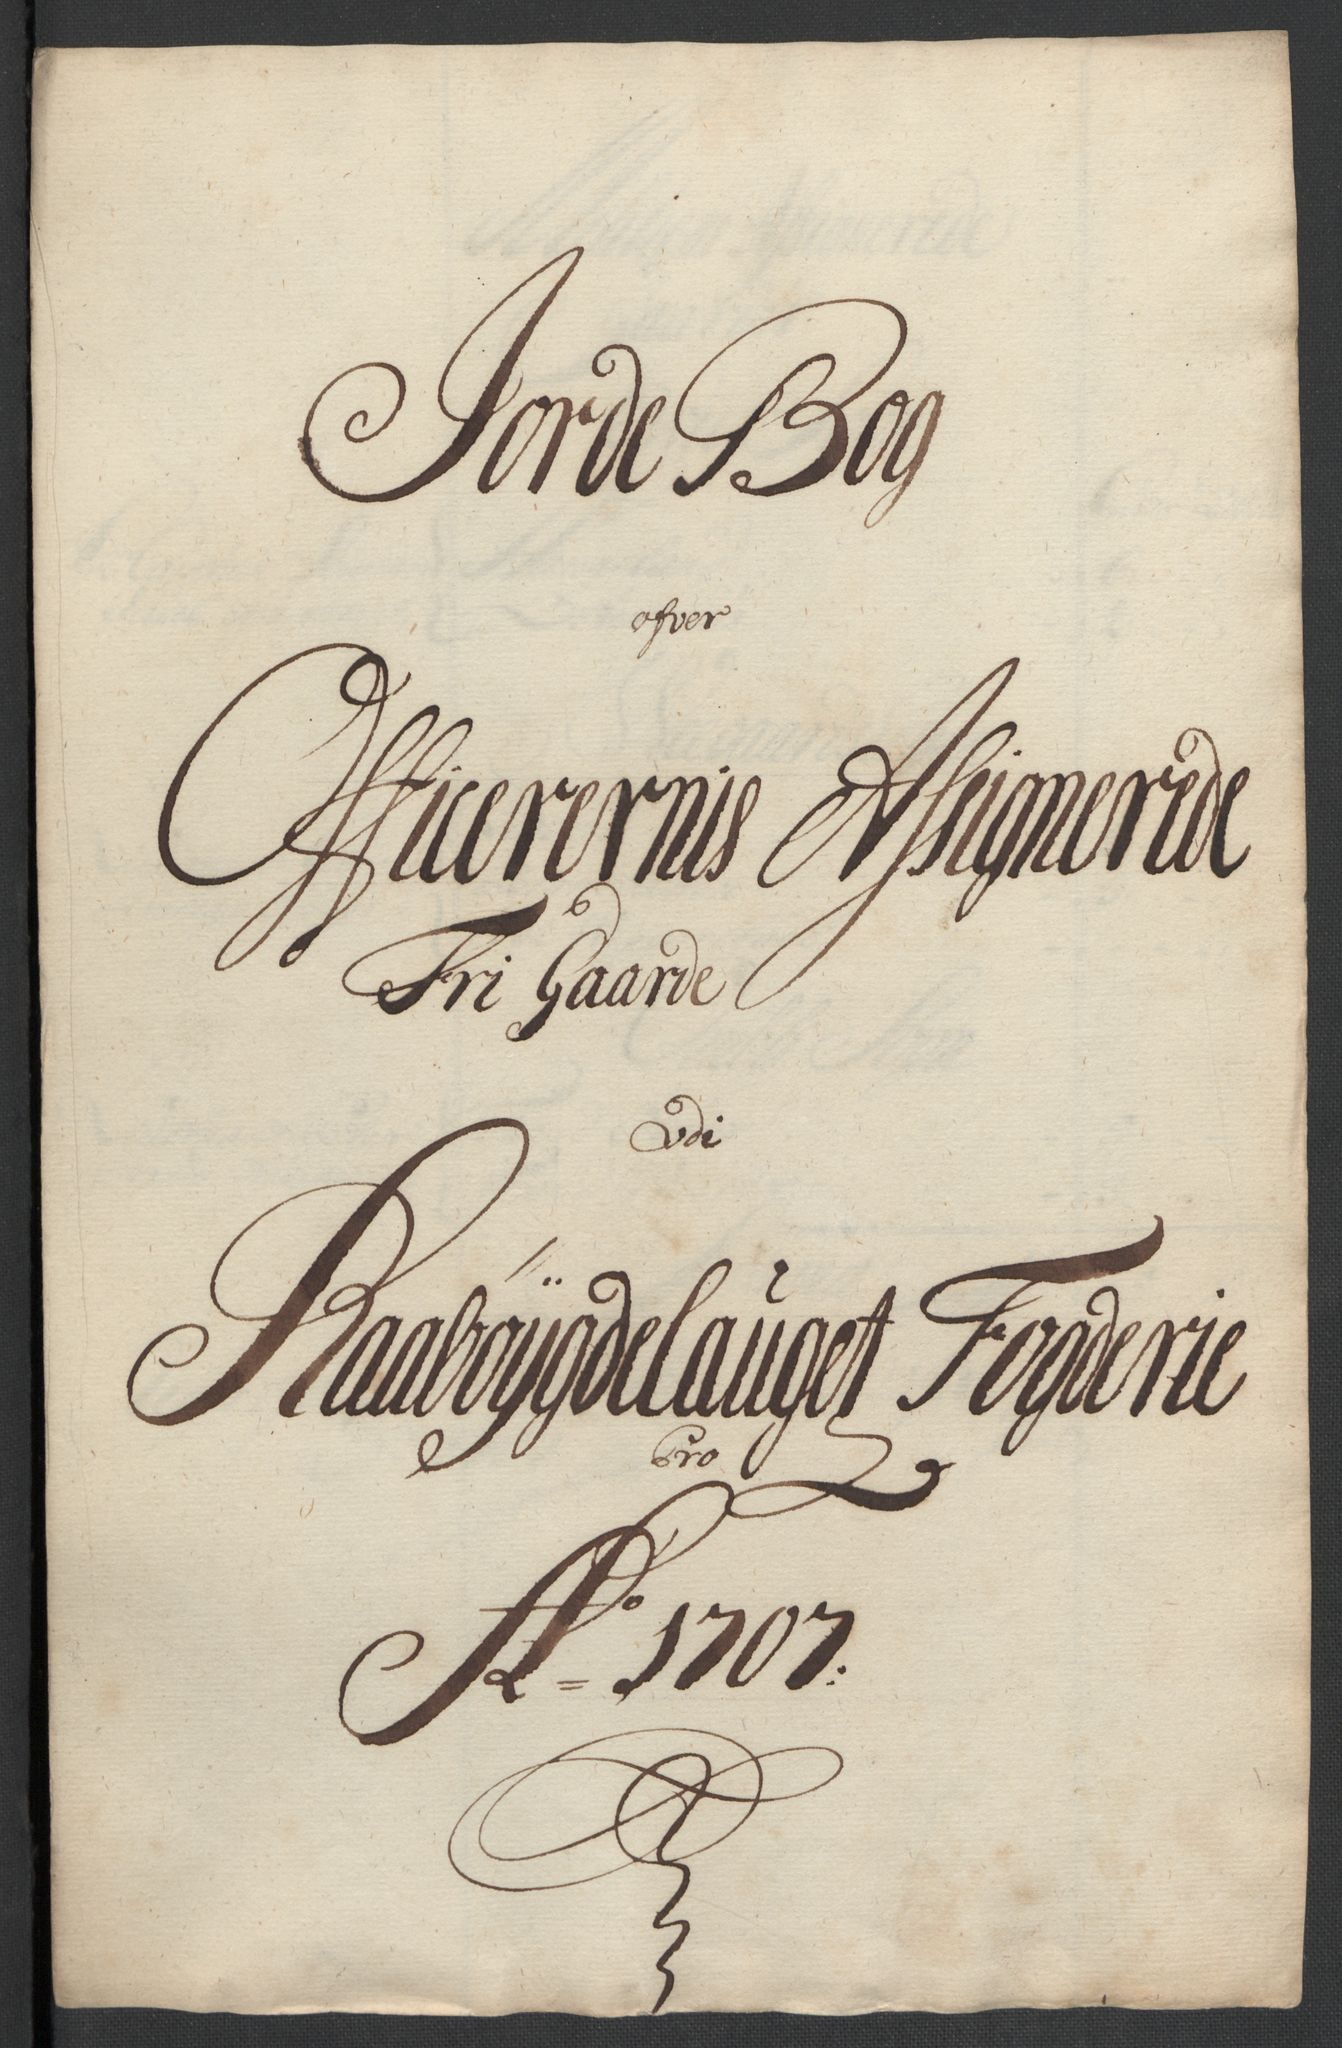 Jorde Bog
ofver
Officerernis Assignerede
Fri Gaarde
vdi
Raabøÿgdelauget Fogderie
Pro
Ao = 1707: